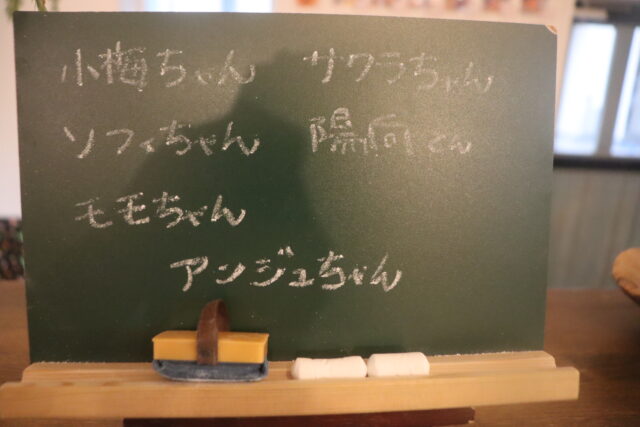 小梅ちゃん サワラちゃん
ソフィちゃん 陽向くん
モモちゃん
アンジュちゃん